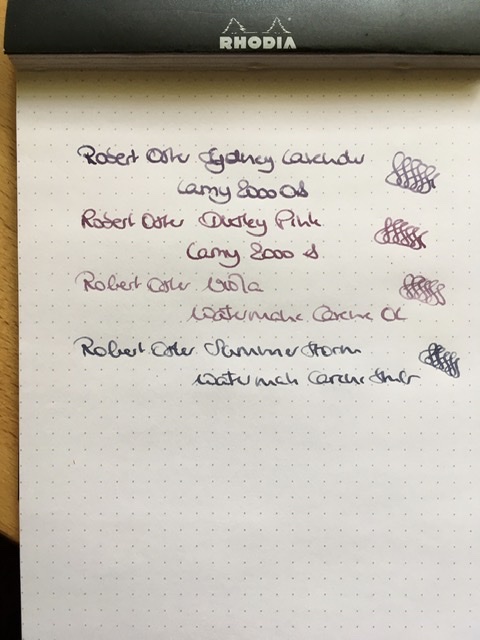 RHODIA
Robert Oster Sydney Lavender
Lamy 2000
Robert Oster Dusky Pink
Lamy 2000
Robert Oster Viola
Waterman Carène
Robert Oster Summer Storm
Waterman Carène